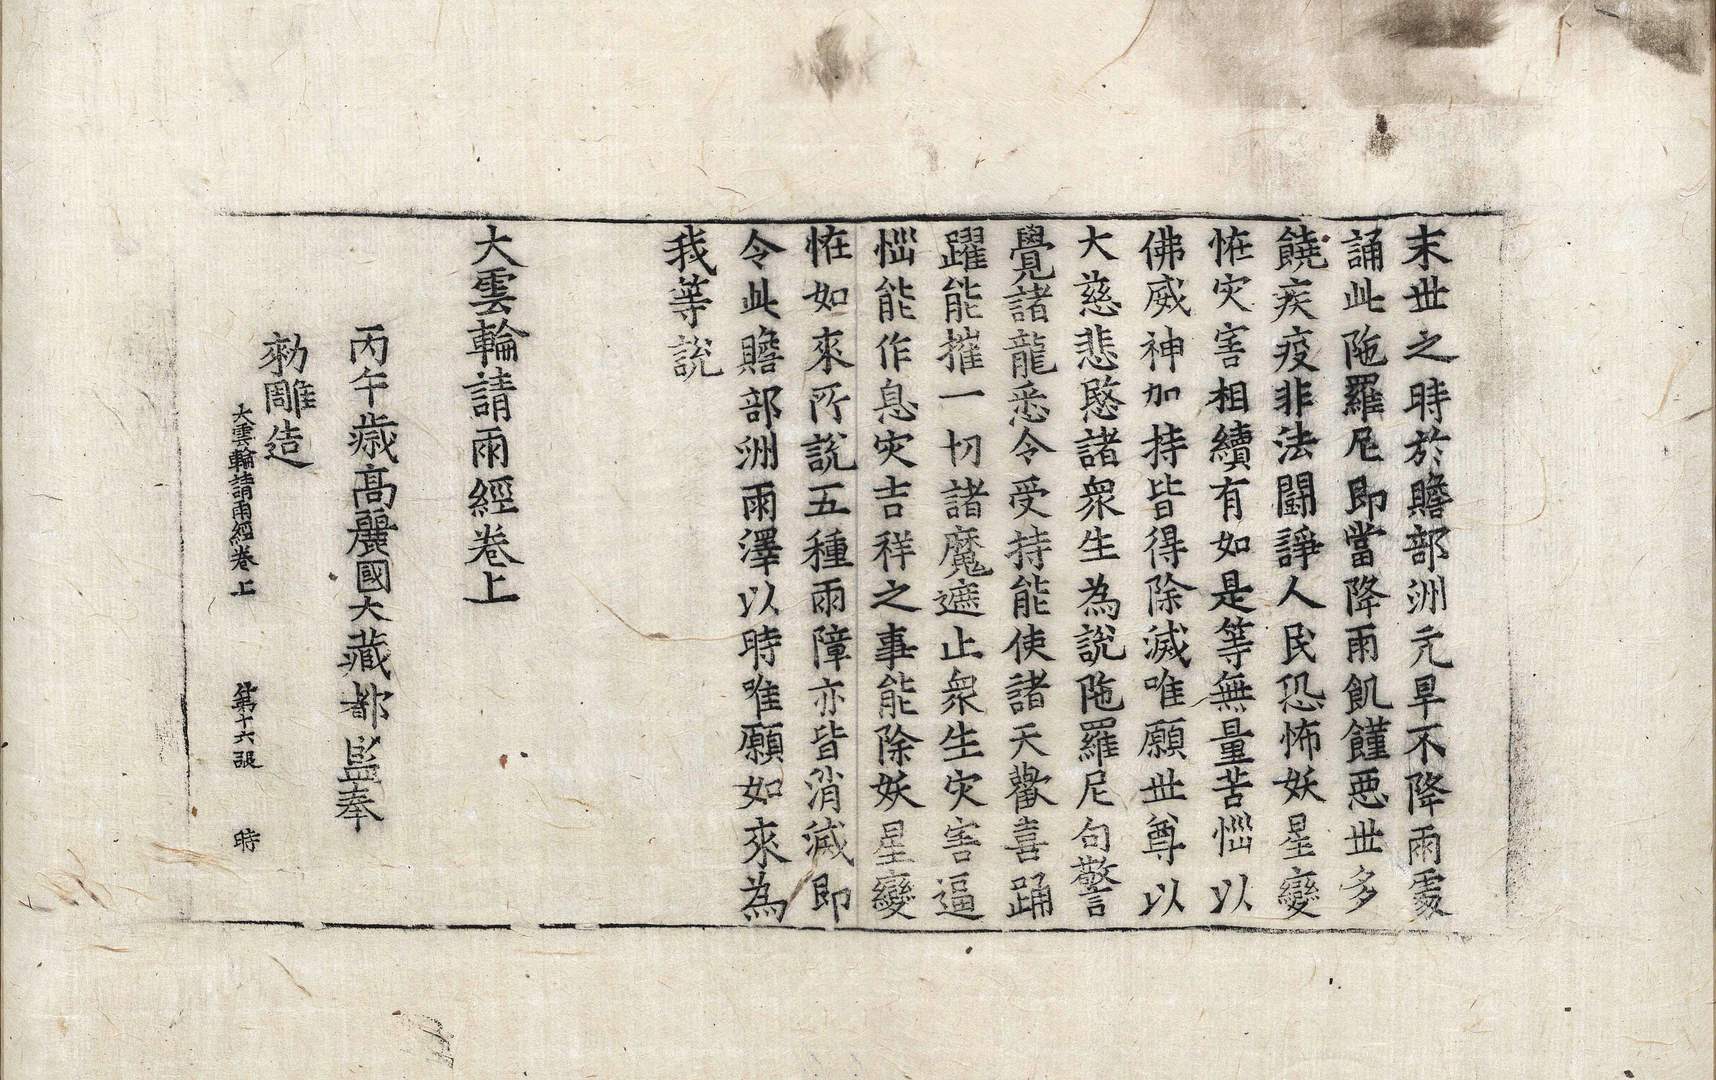 末世之時於贍部洲亢旱不降雨處
誦此陁羅尼即當降雨飢饉惡世多
饒疾疫非法鬪諍人民恐怖妖星變
恠灾害相續有如是等無量苦惱以
佛威神加持皆得除滅唯願世尊以
大慈悲愍諸衆生為說陁羅尼句警
覺諸龍悉令受持能使諸天歡喜踊
躍能摧一切諸魔遮止衆生灾害逼
惱能作息灾吉祥之事能除妖星變
恠如來所說五種雨障亦皆消滅即
令此贍部洲雨澤以時唯願如來為
我等說
大雲輪請雨經卷上
丙午歲高麗國大藏都監奉
勑雕造
大雲輪請雨經卷上 第十六張 時